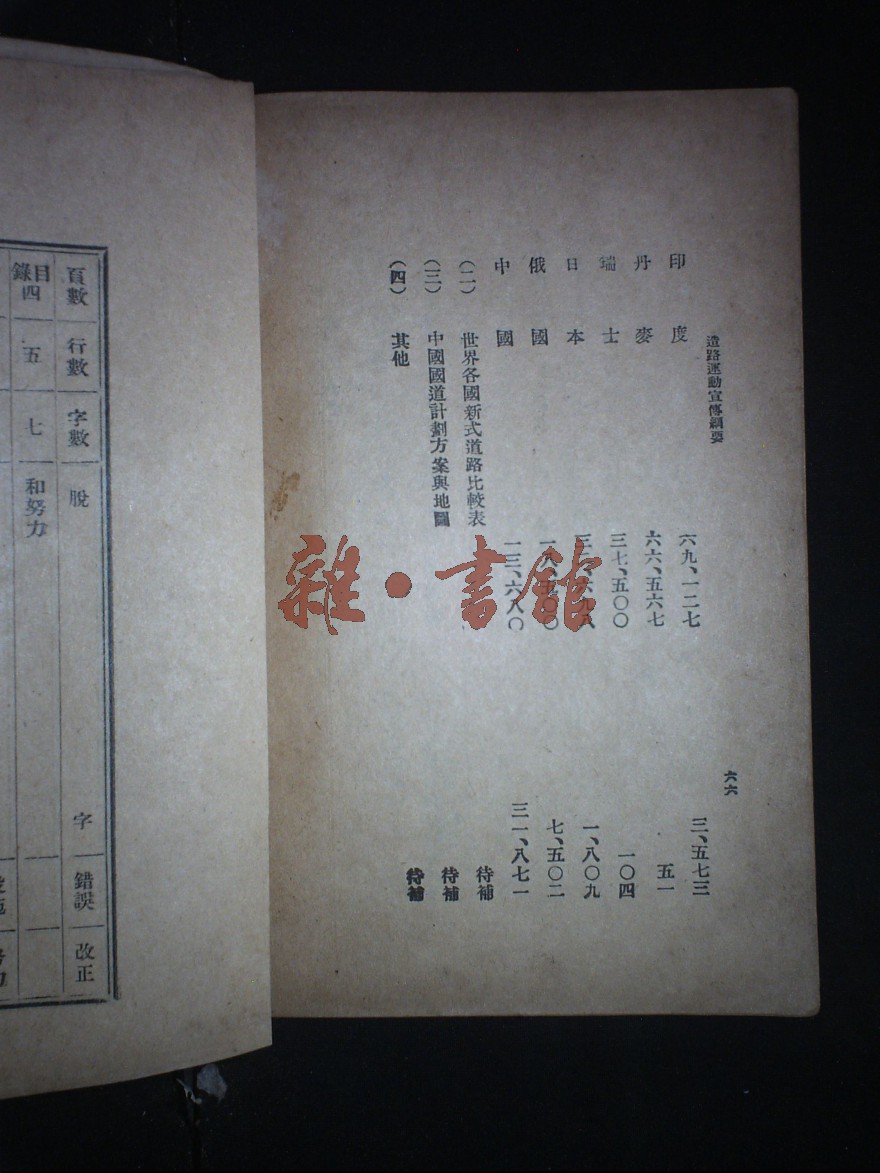 道路運動宣傳綱要 六六
印度 六九、一二七 三、五七三
丹麥 六六、五六七 五一
瑞士 三七、五〇〇 一〇四
日本 一、八〇九
俄國 七、五〇二
中國 一三、六八〇 三一、八七一
(二) 世界各國新式道路比較表 待補
(三) 中國國道計劃方案與地圖 待補
(四) 其他 待補
頁數 行數 字數 脫 字 錯誤 改正
目錄四 五 七 和努力
雜·書館